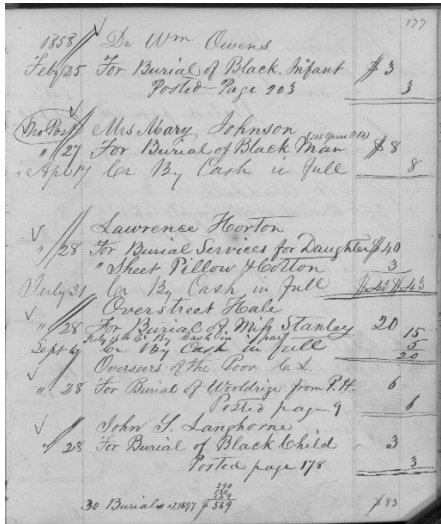 177
1858 Dr Wm Owens
Feby 25 For Burial of Black Infant $3
Posted Page 203 3
Mrs Mary Johnson
" 27 For Burial of Black Man $8
Apl 17 Cr By Cash in full 8
Lawrence Horton
" 28 For Burial Services for Daughter $40
" Sheet Pillow & Cotton 3
July 31 Cr By Cash in full $43 $43
Overstreet Hale
" 28 For Burial of Miss Stanley 20
July 16th Cr By Cash in part 15
Sept 9 Cr By Cash in full 5
20
Overseers of the Poor C. L.
" 28 For Burial of Wooldrige from P.H. 6
Posted page 9 6
John S. Langhorne
" 28 For Burial of Black Child 3
Posted page 178 3
30 Burials $569 $83